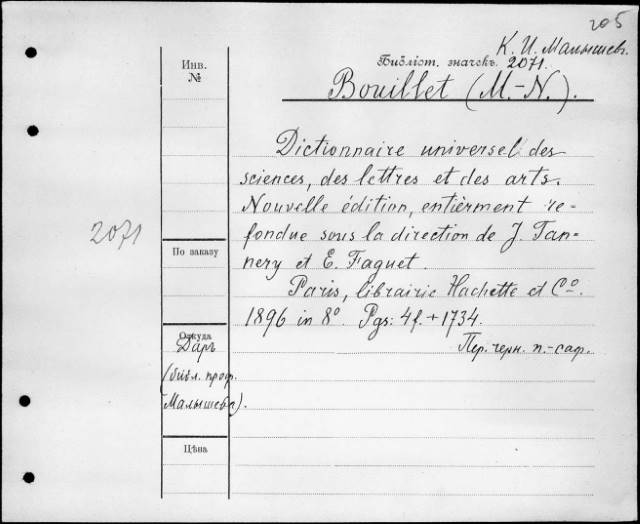 205
К. И. Малышев.
Библіот. значекъ. 2071.
Инв.
№
Bouillet (M.-N.).
Dictionnaire universel des
sciences, des lettres et des arts.
Nouvelle édition, entièrment re-
fondue sous la direction de J. Tan-
nery et E. Faguet.
Paris, librairie Hachette et Cº.
1896 in 8º. Pgs: 4f. + 1734.
Пер. черн. п.-саф.
2071
По заказу
Откуда
Даръ
(библ. проф.
Малышева).
Цѣна